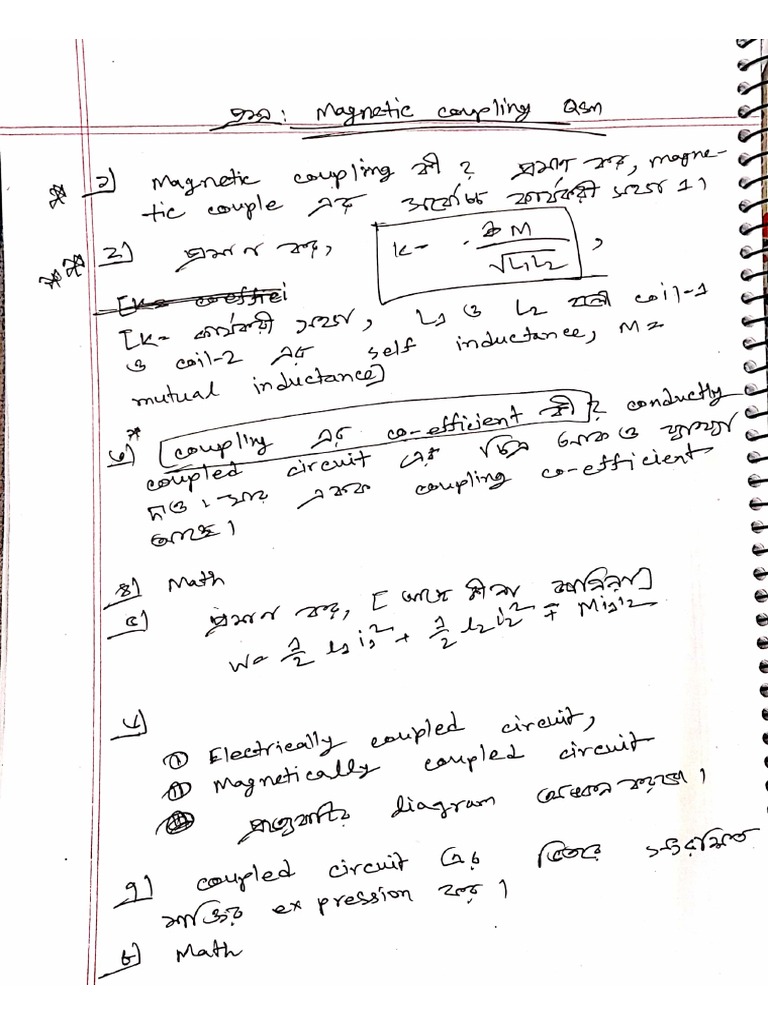 প্রশ্ন: Magnetic coupling Qsn
* ১) Magnetic coupling কী ? প্রমাণ কর, magne-
tic couple এর সর্বোচ্চ কার্যকরী সহগ 1।
** ২) প্রমাণ কর, K = M / √L1L2 ,
[K= coeffici
[K= কার্যকরী সহগ, L1 ও L2 coil-1
ও coil-2 এর self inductance, M=
mutual inductance]
* ৩) coupling এর co-efficient কী ? conductly
coupled circuit এর চিত্র আঁক ও ব্যাখ্যা
দাও। আর একক coupling co-efficient
৪) Math
৫) প্রমাণ কর,
W= 1/2 L1 i1² + 1/2 L2 i2² ∓ M i1 i2
৬)
① Electrically coupled circuit,
② Magnetically coupled circuit
diagram
৭) coupled circuit এর ভিতরে সঞ্চয়িত
শক্তির expression কর।
৮) Math